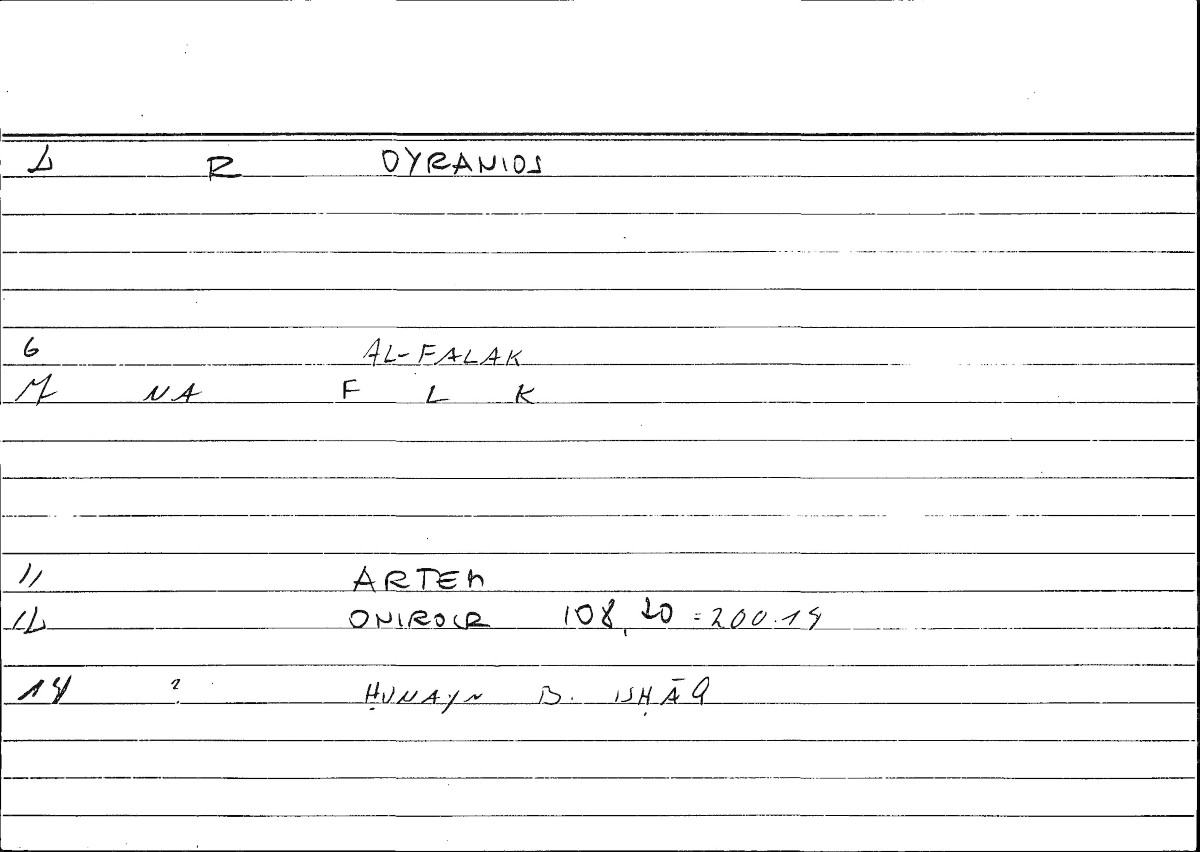 2 R OYRANIOS
6 AL-FALAK
7 NA F L K
11 ARTEM
12 ONIROCR 108,20 = 200.14
14 ? ḤUNAYN B. ISḤĀQ